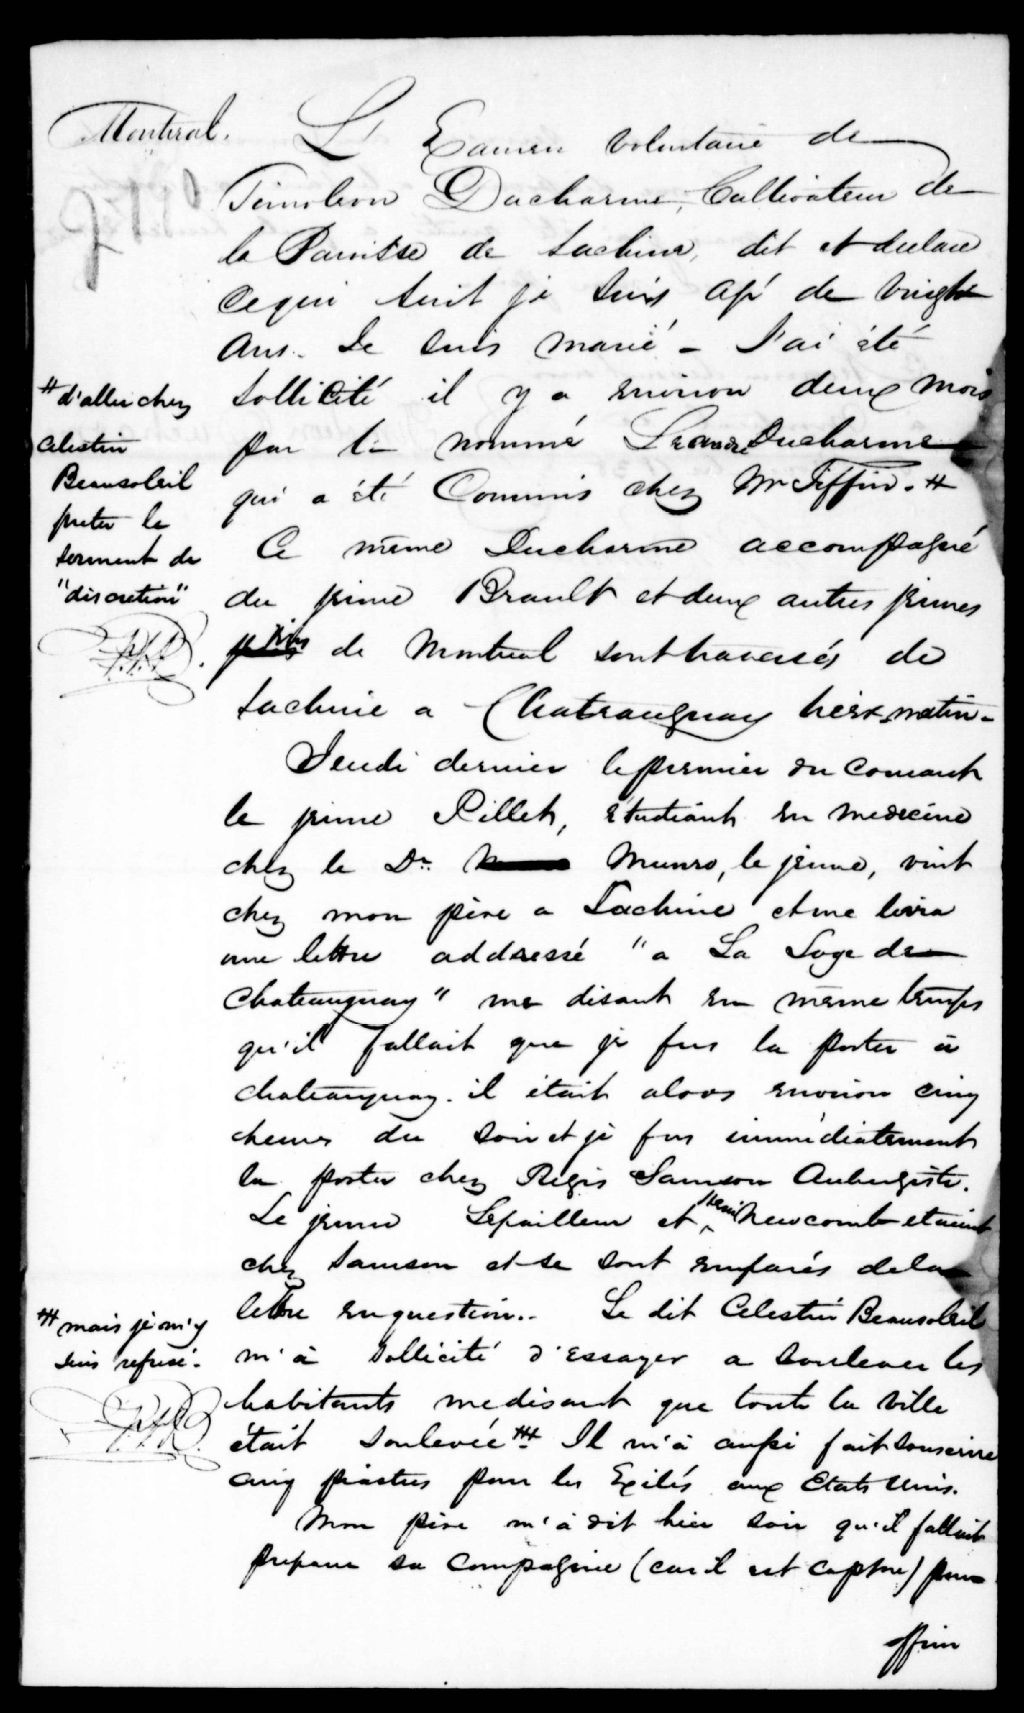 Montreal.
L'Examen volontaire de
Timoleon Ducharme, Cultivateur de
la Paroisse de Lachine, dit et declare
ce qui suit je suis agé de vingt
Ans. Je suis marié - J'ai été
sollicité il y a environ deux mois
par le nommé Leandre Ducharme
qui a été Commis chez Mr Tiffin. #
# d'aller chez
Celestin
Beausoleil
preter le
serment de
"discretion"
Ce même Ducharme accompagné
du jeune Brault et deux autres jeunes
gens de Montreal sont traversés de
Lachine a Chateauguay hier matin -
Jeudi dernier le premier du courant
le jeune Pillet, étudiant en medecine
chez le Dr. Munro, le jeune, vint
chez mon père a Lachine et me livra
une lettre addressé "a La Loge de
Chateauguay" me disant en même temps
qu'il fallait que je fus la porter à
chateauguay. il était alors environ cinq
heures du soir et je fus immédiatement
la porter chez Regis Samson Aubergiste.
Le jeune Lepailleur et Newcomb etaient
chez Samson et se sont emparés de la
lettre en question.. Le dit Celestin Beausoleil
m'à sollicité d'essayer a soulever les
habitants me disant que toute la ville
était soulevée ## Il m'à aussi fait souscrire
## mais je m'y
suis refusé -
cinq piastres pour les Exilés aux Etats Unis.
Mon père m'à dit hier soir qu'il fallait
preparer sa compagnie (car il est captne) pour
offrir